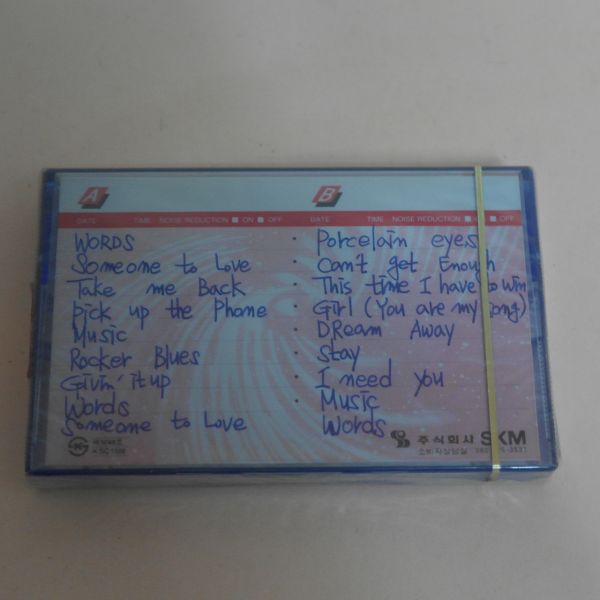 A
DATE TIME NOISE REDUCTION ON OFF
WORDS
Someone to Love
Take me Back
pick up the Phone
Music
Rocker Blues
Givin' it up
Words
Someone to Love
B
DATE TIME NOISE REDUCTION OFF
Porcelain eyes
Can't get Enough
This time I have to win
Girl (You are my song)
DReam Away
Stay
I need you
Music
Words
주식회사 SKM
소비자상담실